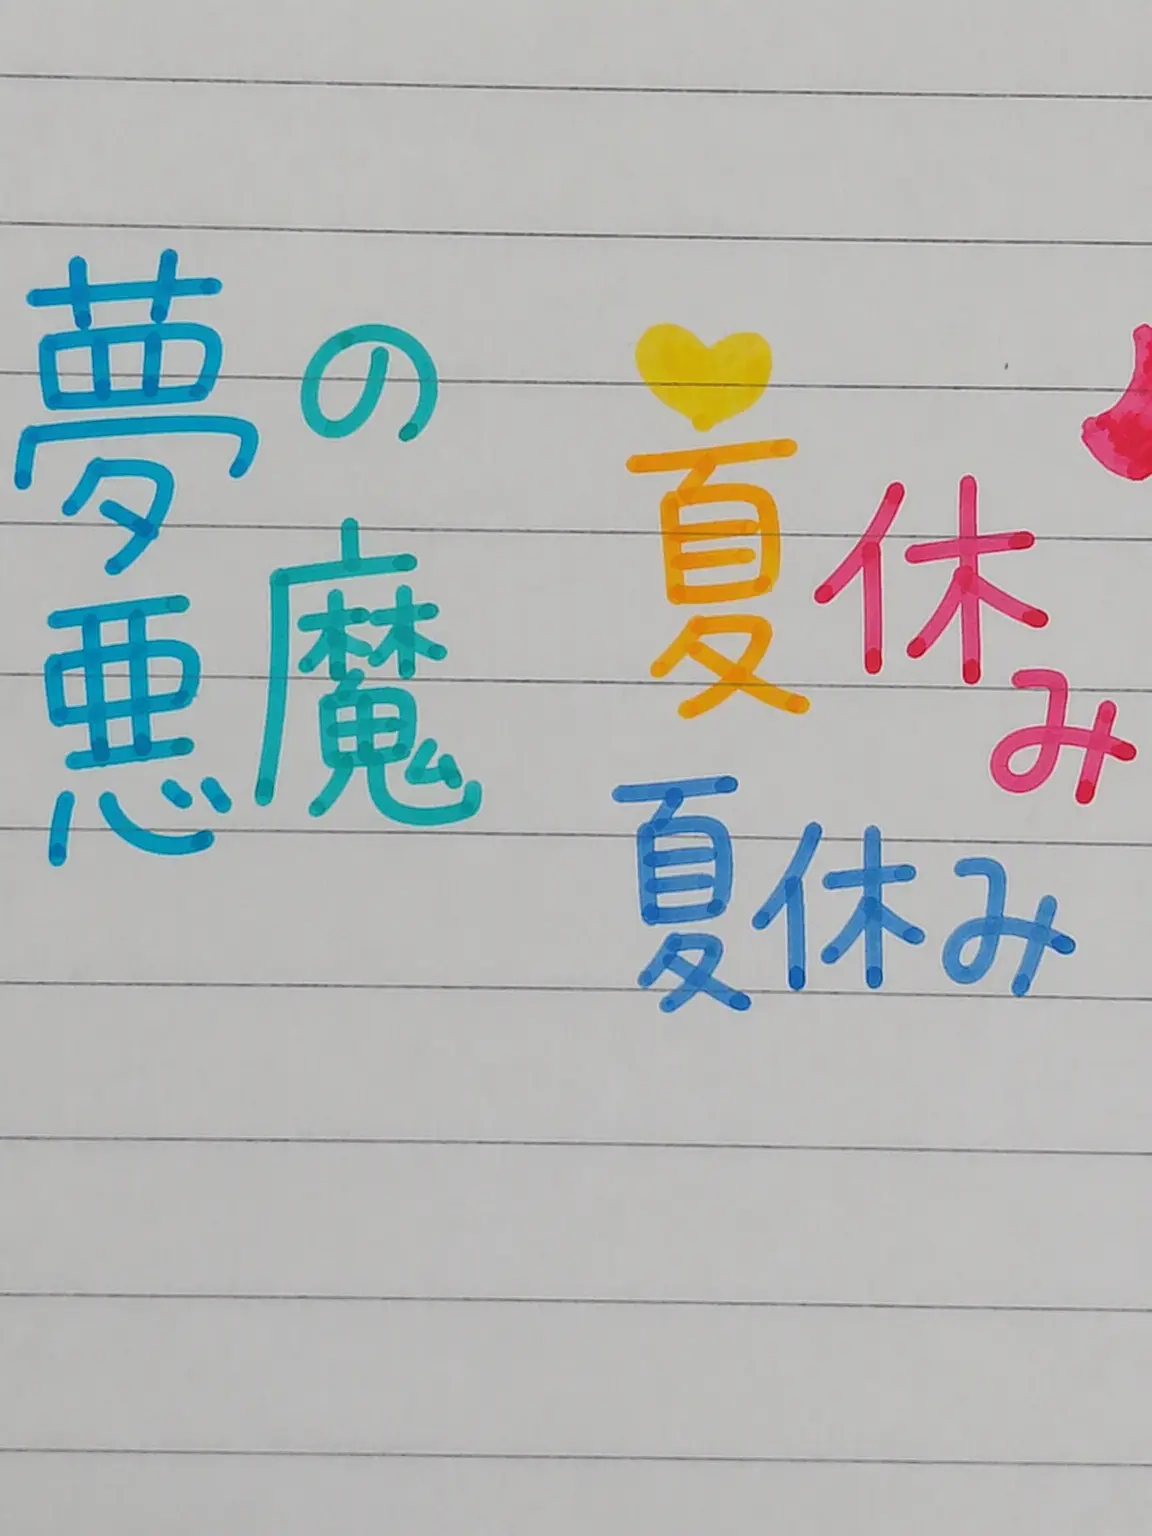 夢の
悪魔
夏休み
夏休み